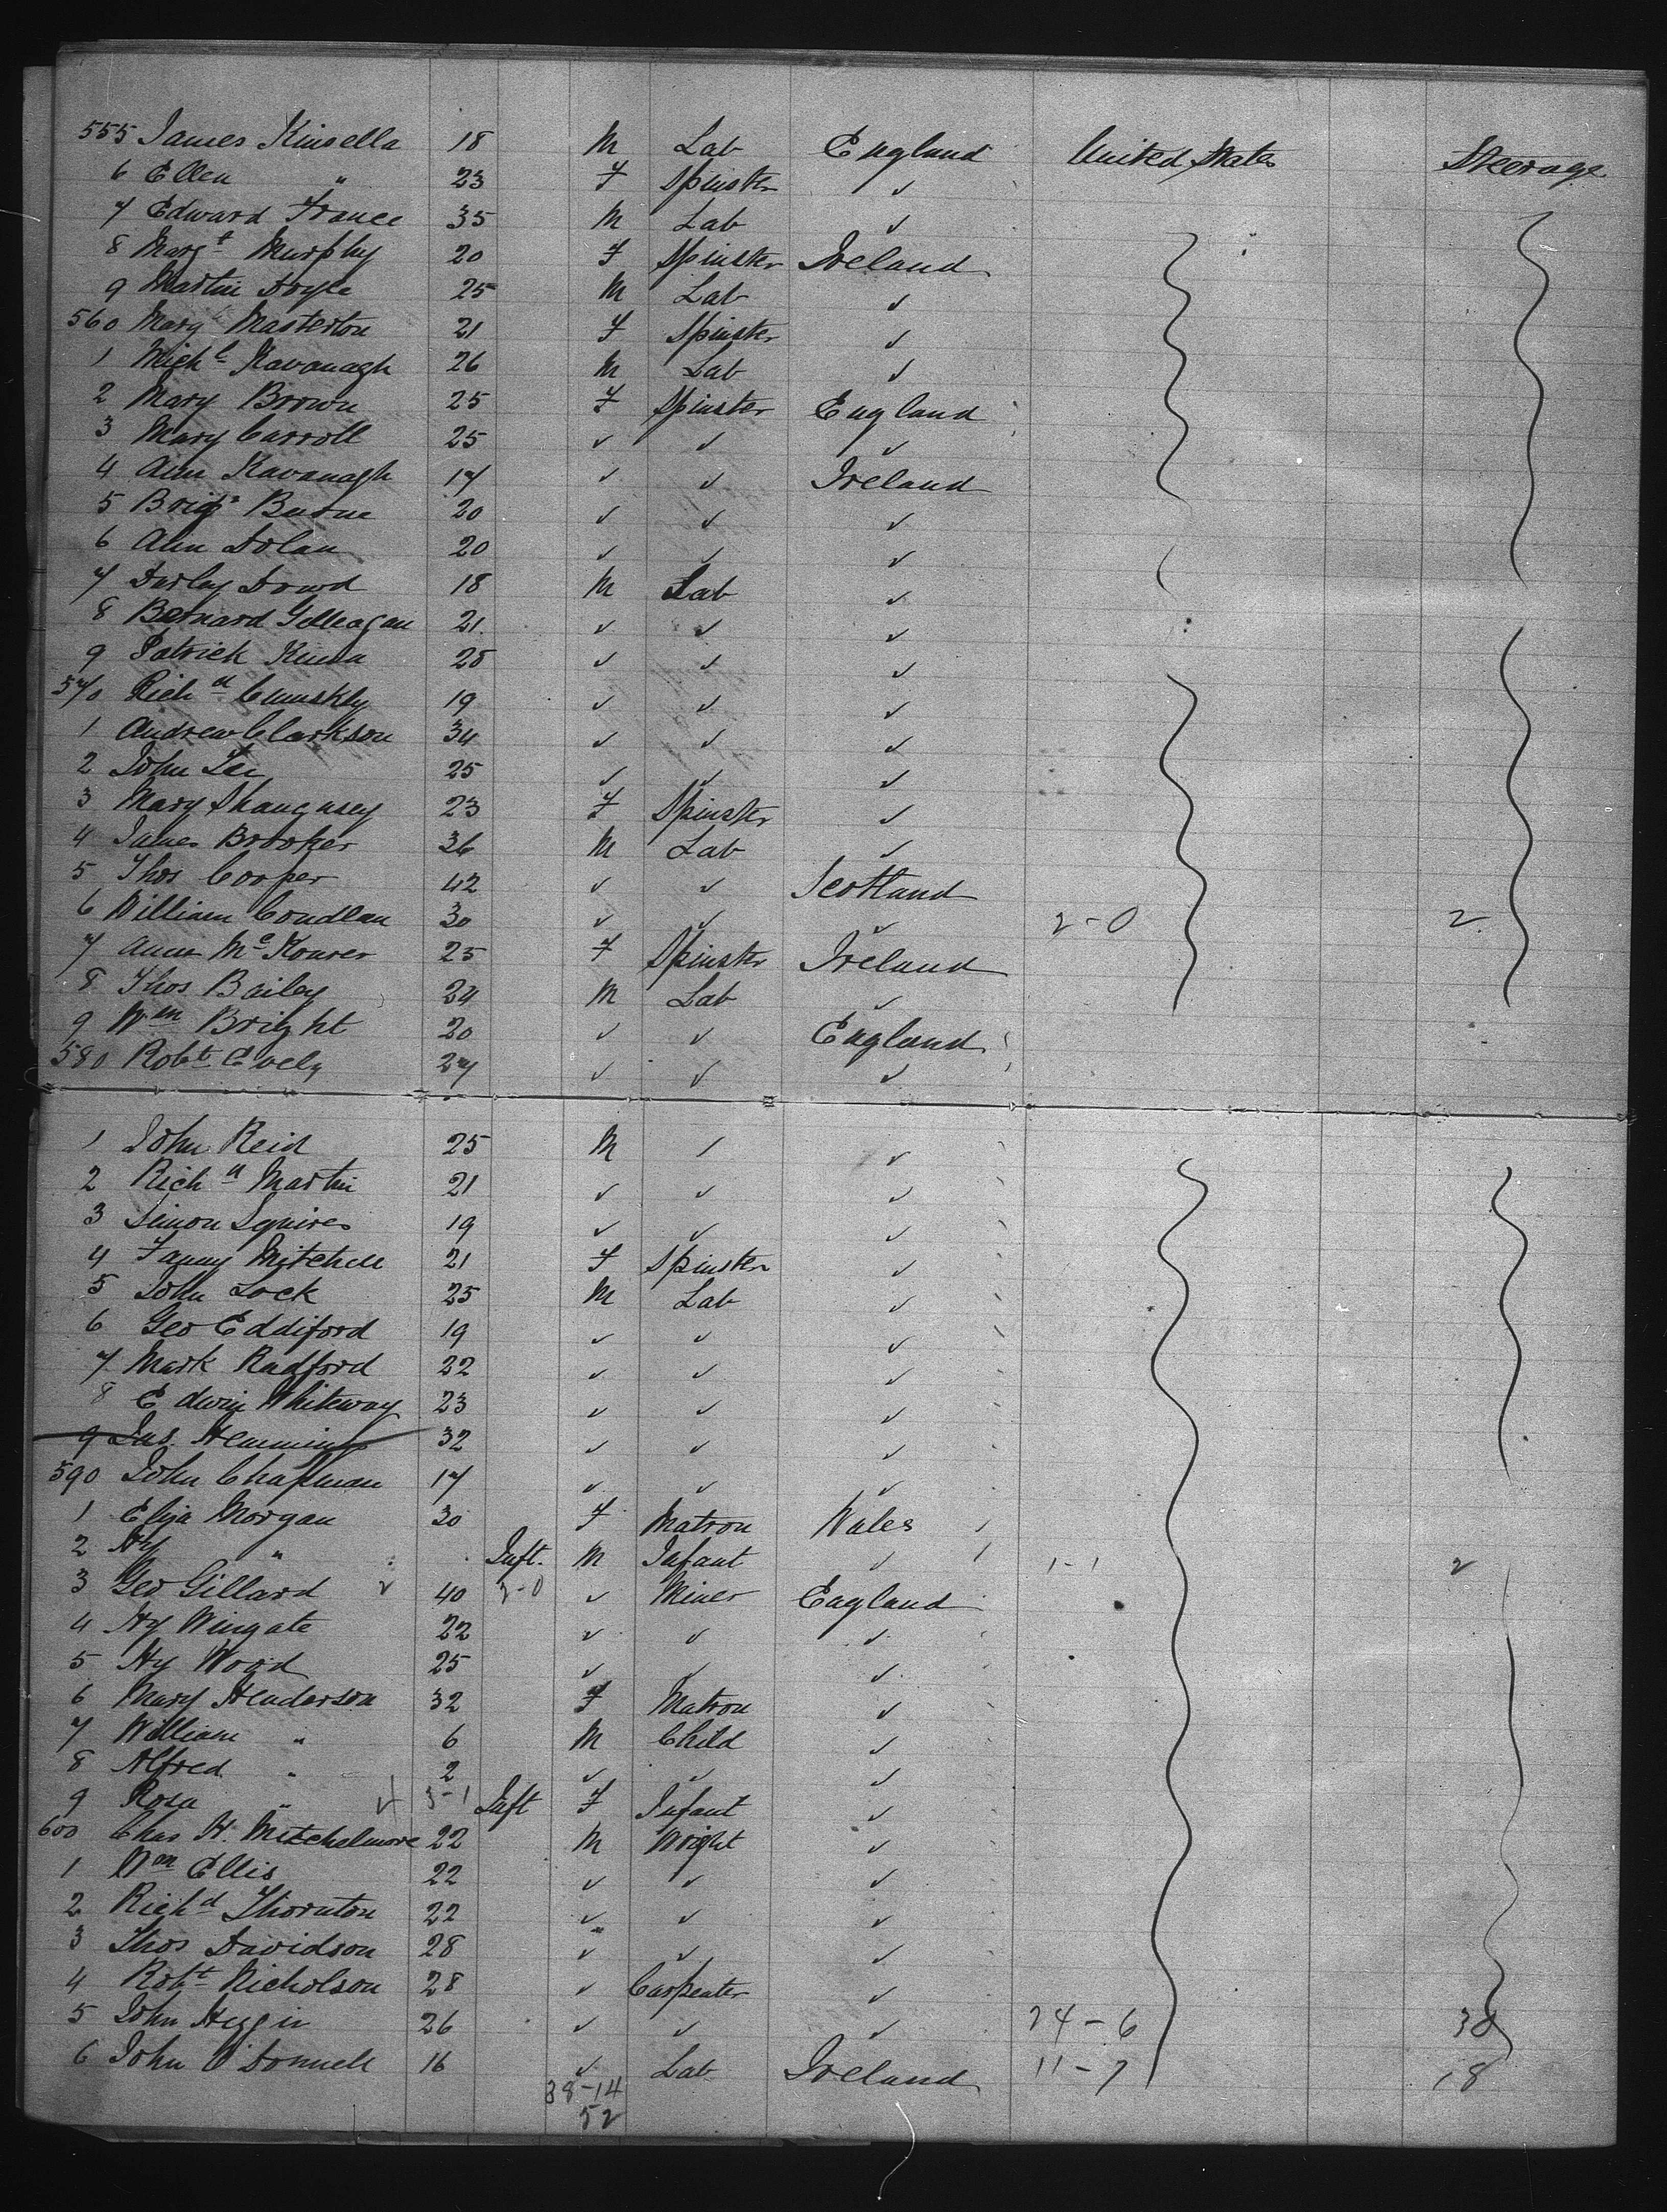 555 James Kinsella 18 M Lab England United States Steerage
6 Ellen " 23 F Spinster ✓
7 Edward France 35 M Lab ✓
8 Margt Murphy 20 F Spinster Ireland
9 Martin Doyle 25 M Lab ✓
560 Mary Masterton 21 F Spinster ✓
1 Michl Kavanagh 26 M Lab ✓
2 Mary Brown 25 F Spinster England
3 Mary Carroll 25 ✓ ✓ ✓
4 Ann Kavanagh 17 ✓ ✓ Ireland
5 Brigt 20 ✓ ✓ ✓
6 Ann Dolan 20 ✓ ✓ ✓
7 Darley Dowd 18 M Lab ✓
8 Bernard Gilleagan 21 ✓ ✓ ✓
9 Patrick 28 ✓ ✓ ✓
570 Richd Cumskey 19 ✓ ✓ ✓
1 Andrew Clarkson 34 ✓ ✓ ✓
2 John Lee 25 ✓ ✓ ✓
3 Mary Shaugnsey 23 F Spinster ✓
4 James Brooker 36 M Lab ✓
5 Thos Cooper 42 ✓ ✓ Scotland
6 William Condlan 30 ✓ ✓ ✓ 2-0 2
7 Annie Mc 25 F Spinster Ireland
8 Thos Bailey 24 M Lab ✓
9 Wm Bright 20 ✓ ✓ England
580 Robt Evely 27 ✓ ✓ ✓
1 John Reid 25 M ✓ ✓
2 Richd Martin 21 ✓ ✓ ✓
3 Simon Squires 19 ✓ ✓ ✓
4 Fanny Mitchell 21 F Spinster ✓
5 John Lock 25 M Lab ✓
6 Geo Eddiford 19 ✓ ✓ ✓
7 Mark Radford 22 ✓ ✓ ✓
8 Edwin Whiteway 23 ✓ ✓ ✓
9 Jas. Hemmings 32 ✓ ✓ ✓
590 John Chapman 17 ✓ ✓ ✓
1 Eliza Morgan 30 F Matron Wales
2 Hy " Inft. M Infant ✓ 1-1 2
3 Geo Gillard ✓ 40 2-0 ✓ Miner England
4 Hy Wingate 22 ✓ ✓ ✓
5 Hy Wood 25 ✓ ✓ ✓
6 Mary Henderson 32 F Matron ✓
7 William " 6 M Child ✓
8 Alfred " 2 ✓ ✓ ✓
9 Rosa " ✓ 3-1 Inft F Infant ✓
600 Chas H. Mitchelmore 22 M Wright ✓
1 Wm Ellis 22 ✓ ✓ ✓
2 Richd Thornton 22 ✓ ✓ ✓
3 Thos Davidson 28 ✓ ✓ ✓
4 Robt Nicholson 28 ✓ Carpenter ✓
5 John 26 ✓ ✓ ✓ 24-6 30
6 John O'Donnell 16 ✓ Lab Ireland 11-7 18
38-14
52